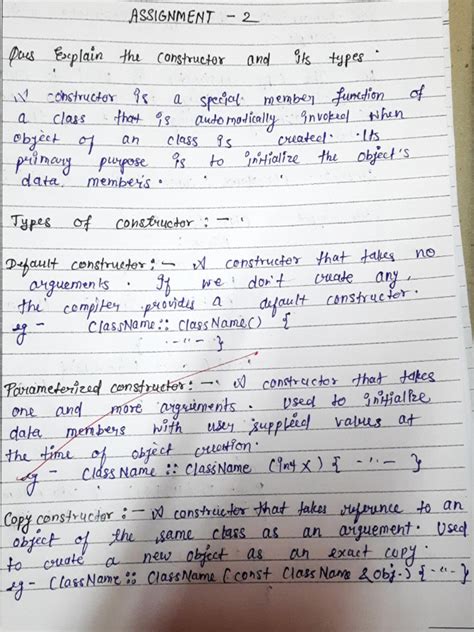 ASSIGNMENT - 2
Ques Explain the constructor and its types.
A constructor is a special member function of
a class that is automatically invoked when
object of an class is created. Its
primary purpose is to initialize the object's
data members.
Types of constructor : -
Default constructor : - A constructor that takes no
arguements. If we don't create any,
the compiler provides a default constructor.
eg - ClassName :: ClassName() {
--"-- }
Parameterized constructor : - A constructor that takes
one and more arguements. Used to initialize
data members with user supplied values at
the time of object creation.
eg - ClassName :: ClassName (int x) { --"-- }
Copy constructor : - A constructor that takes reference to an
object of the same class as an arguement. Used
to create a new object as an exact copy.
eg - ClassName :: ClassName (const ClassName & obj.) { --"-- }